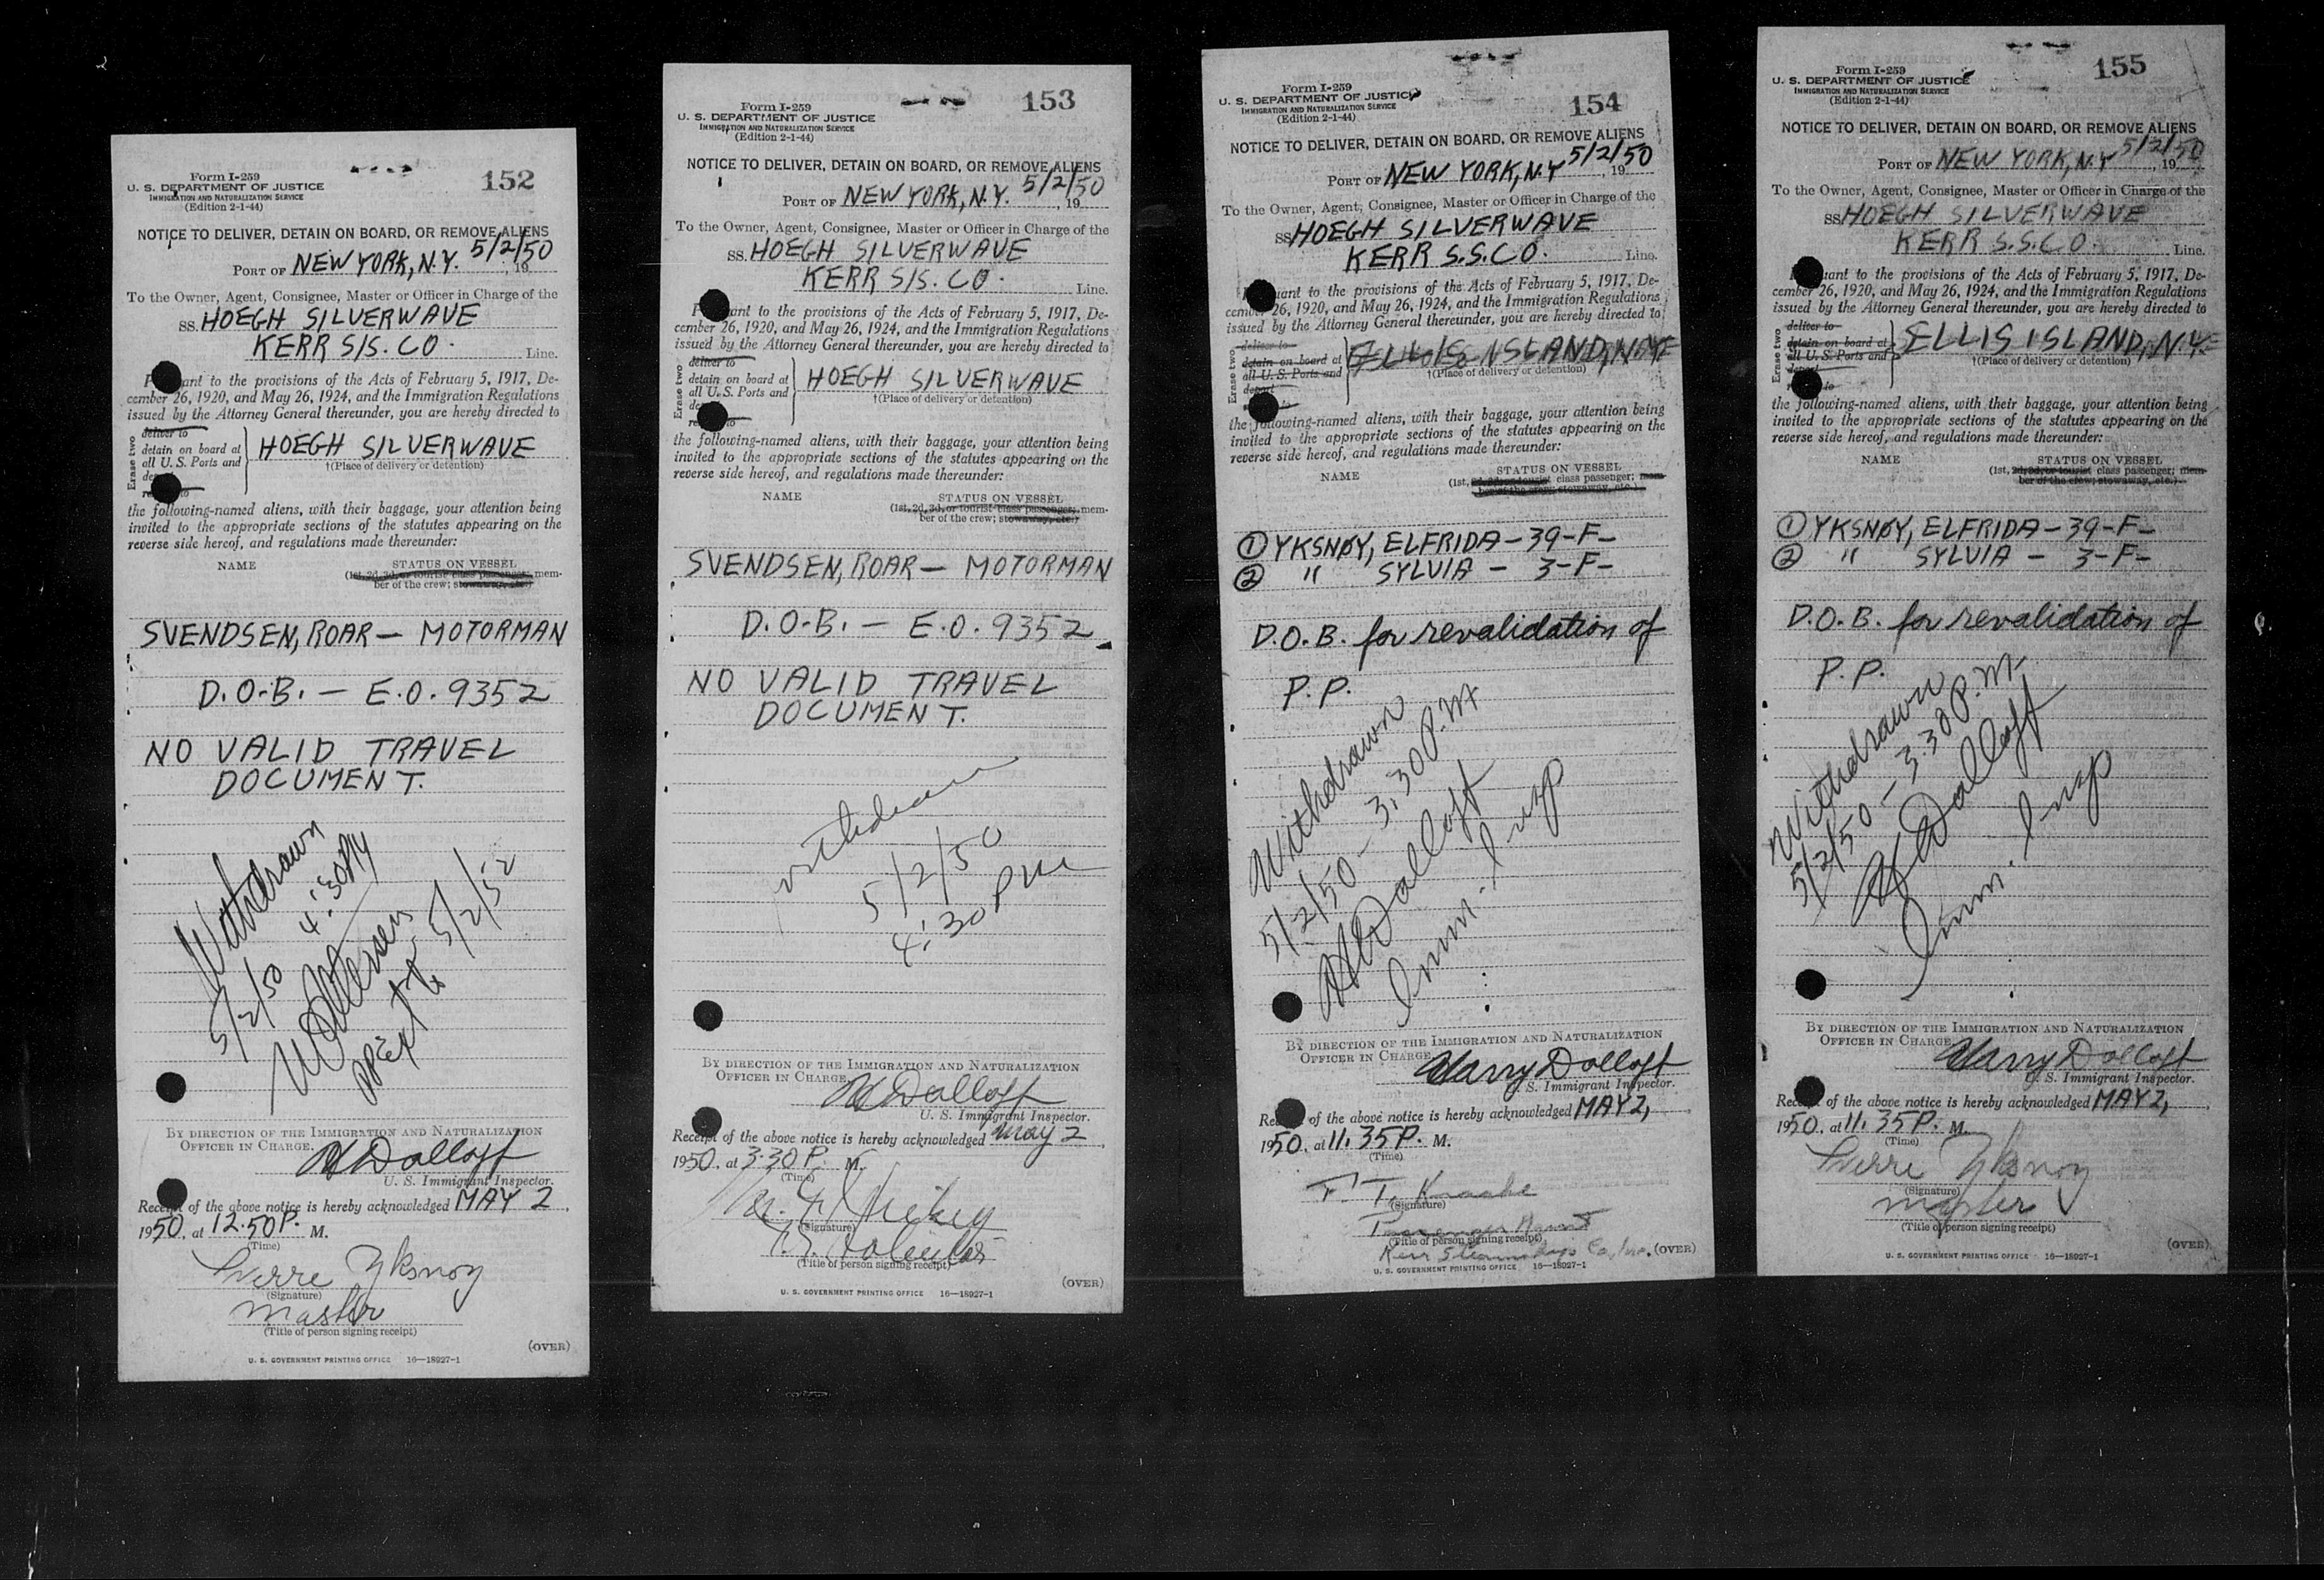 Form I-259
152
U. S. DEPARTMENT OF JUSTICE
IMMIGRATION AND NATURALIZATION SERVICE
(Edition 2-1-44)
NOTICE TO DELIVER, DETAIN ON BOARD, OR REMOVE ALIENS
PORT OF NEW YORK, N.Y. 5/2/50, 19
To the Owner, Agent, Consignee, Master or Officer in Charge of the
SS. HOEGH SILVERWAVE
KERR S/S. CO. Line.
ant to the provisions of the Acts of February 5, 1917, De-
cember 26, 1920, and May 26, 1924, and the Immigration Regulations
issued by the Attorney General thereunder, you are hereby directed to
Erase two
deliver to
detain on board at
all U. S. Ports and
HOEGH SILVERWAVE
†(Place of delivery or detention)
the following-named aliens, with their baggage, your attention being
invited to the appropriate sections of the statutes appearing on the
reverse side hereof, and regulations made thereunder:
NAME STATUS ON VESSEL
(1st, 2d, 3d, or tourist class passenger; mem-
ber of the crew; stowaway, etc.)
SVENDSEN, ROAR — MOTORMAN
D.O.B. — E.O. 9352
NO VALID TRAVEL
DOCUMENT.
Withdrawn
5/2/50 4:30PM
5/2/52
BY DIRECTION OF THE IMMIGRATION AND NATURALIZATION
OFFICER IN CHARGE
H Dolloff
U. S. Immigrant Inspector.
Receipt of the above notice is hereby acknowledged MAY 2,
1950, at 12.50 P. M.
(Time)
Sverre Yksnoy
(Signature)
master
(Title of person signing receipt)
(OVER)
U. S. GOVERNMENT PRINTING OFFICE 16—18927-1
Form I-259
153
U. S. DEPARTMENT OF JUSTICE
IMMIGRATION AND NATURALIZATION SERVICE
(Edition 2-1-44)
NOTICE TO DELIVER, DETAIN ON BOARD, OR REMOVE ALIENS
PORT OF NEW YORK, N.Y. 5/2/50, 19
To the Owner, Agent, Consignee, Master or Officer in Charge of the
SS. HOEGH SILVERWAVE
KERR S/S. CO. Line.
ant to the provisions of the Acts of February 5, 1917, De-
cember 26, 1920, and May 26, 1924, and the Immigration Regulations
issued by the Attorney General thereunder, you are hereby directed to
Erase two
deliver to
detain on board at
all U. S. Ports and
HOEGH SILVERWAVE
†(Place of delivery or detention)
the following-named aliens, with their baggage, your attention being
invited to the appropriate sections of the statutes appearing on the
reverse side hereof, and regulations made thereunder:
NAME STATUS ON VESSEL
(1st, 2d, 3d, or tourist class passenger; mem-
ber of the crew; stowaway, etc.)
SVENDSEN, ROAR — MOTORMAN
D.O.B. — E.O. 9352
NO VALID TRAVEL
DOCUMENT.
withdrawn
5/2/50
4:30 PM
BY DIRECTION OF THE IMMIGRATION AND NATURALIZATION
OFFICER IN CHARGE
H Dolloff
U. S. Immigrant Inspector.
Receipt of the above notice is hereby acknowledged May 2,
1950, at 3.30 P. M.
(Time)
(Signature)
(Title of person signing receipt)
(OVER)
U. S. GOVERNMENT PRINTING OFFICE 16—18927-1
Form I-259
154
U. S. DEPARTMENT OF JUSTICE
IMMIGRATION AND NATURALIZATION SERVICE
(Edition 2-1-44)
NOTICE TO DELIVER, DETAIN ON BOARD, OR REMOVE ALIENS
PORT OF NEW YORK, N.Y 5/2/50, 19
To the Owner, Agent, Consignee, Master or Officer in Charge of the
SS. HOEGH SILVERWAVE
KERR S.S.CO. Line.
uant to the provisions of the Acts of February 5, 1917, De-
cember 26, 1920, and May 26, 1924, and the Immigration Regulations
issued by the Attorney General thereunder, you are hereby directed to
Erase two
deliver to
detain on board at
all U. S. Ports and
deport
ELLIS ISLAND, N.Y.
†(Place of delivery or detention)
the following-named aliens, with their baggage, your attention being
invited to the appropriate sections of the statutes appearing on the
reverse side hereof, and regulations made thereunder:
NAME STATUS ON VESSEL
(1st, 2d, 3d, or tourist class passenger; mem-
ber of the crew; stowaway, etc.)
① YKSNØY, ELFRIDA — 39-F-
② " SYLVIA — 3-F-
D.O.B. for revalidation of
P.P.
Withdrawn
5/2/50 — 3.30 P.M
H Dolloff
Imm. Insp
BY DIRECTION OF THE IMMIGRATION AND NATURALIZATION
OFFICER IN CHARGE
Harry Dolloff
U. S. Immigrant Inspector.
Receipt of the above notice is hereby acknowledged MAY 2,
1950, at 11.35 P. M.
(Time)
(Signature)
Passenger Agent
(Title of person signing receipt)
Kerr Steamship Co., Inc. (OVER)
U. S. GOVERNMENT PRINTING OFFICE 16—18927-1
Form I-259
155
U. S. DEPARTMENT OF JUSTICE
IMMIGRATION AND NATURALIZATION SERVICE
(Edition 2-1-44)
NOTICE TO DELIVER, DETAIN ON BOARD, OR REMOVE ALIENS
PORT OF NEW YORK, N.Y 5/2/50, 19
To the Owner, Agent, Consignee, Master or Officer in Charge of the
SS. HOEGH SILVERWAVE
KERR S.S.CO. Line.
uant to the provisions of the Acts of February 5, 1917, De-
cember 26, 1920, and May 26, 1924, and the Immigration Regulations
issued by the Attorney General thereunder, you are hereby directed to
Erase two
deliver to
detain on board at
all U. S. Ports and
deport
ELLIS ISLAND, N.Y.
†(Place of delivery or detention)
the following-named aliens, with their baggage, your attention being
invited to the appropriate sections of the statutes appearing on the
reverse side hereof, and regulations made thereunder:
NAME STATUS ON VESSEL
(1st, 2d, 3d, or tourist class passenger; mem-
ber of the crew; stowaway, etc.)
① YKSNØY, ELFRIDA — 39-F-
② " SYLVIA — 3-F-
D.O.B. for revalidation of
P.P.
Withdrawn
5/2/50 — 3.30 P.M.
H Dolloff
Imm. Insp
BY DIRECTION OF THE IMMIGRATION AND NATURALIZATION
OFFICER IN CHARGE
Harry Dolloff
U. S. Immigrant Inspector.
Receipt of the above notice is hereby acknowledged MAY 2,
1950, at 11.35 P. M.
(Time)
Sverre Yksnoy
(Signature)
master
(Title of person signing receipt)
(OVER)
U. S. GOVERNMENT PRINTING OFFICE 16—18927-1